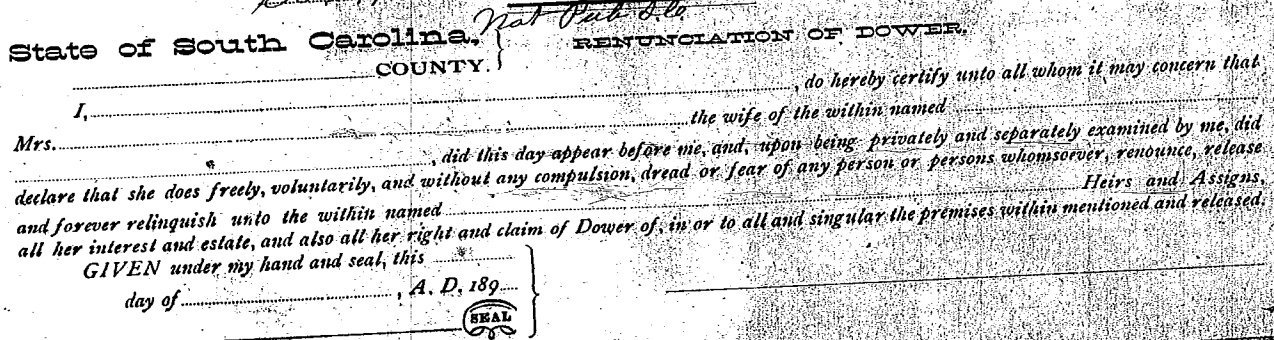 Not Pub S.C.
State of South Carolina,
RENUNCIATION OF DOWER.
COUNTY.
I, , do hereby certify unto all whom it may concern that
Mrs. the wife of the within named
, did this day appear before me, and, upon being privately and separately examined by me, did
declare that she does freely, voluntarily, and without any compulsion, dread or fear of any person or persons whomsoever, renounce, release
and forever relinquish unto the within named Heirs and Assigns,
all her interest and estate, and also all her right and claim of Dower of, in or to all and singular the premises within mentioned and released.
GIVEN under my hand and seal, this
day of , A. D. 189
SEAL